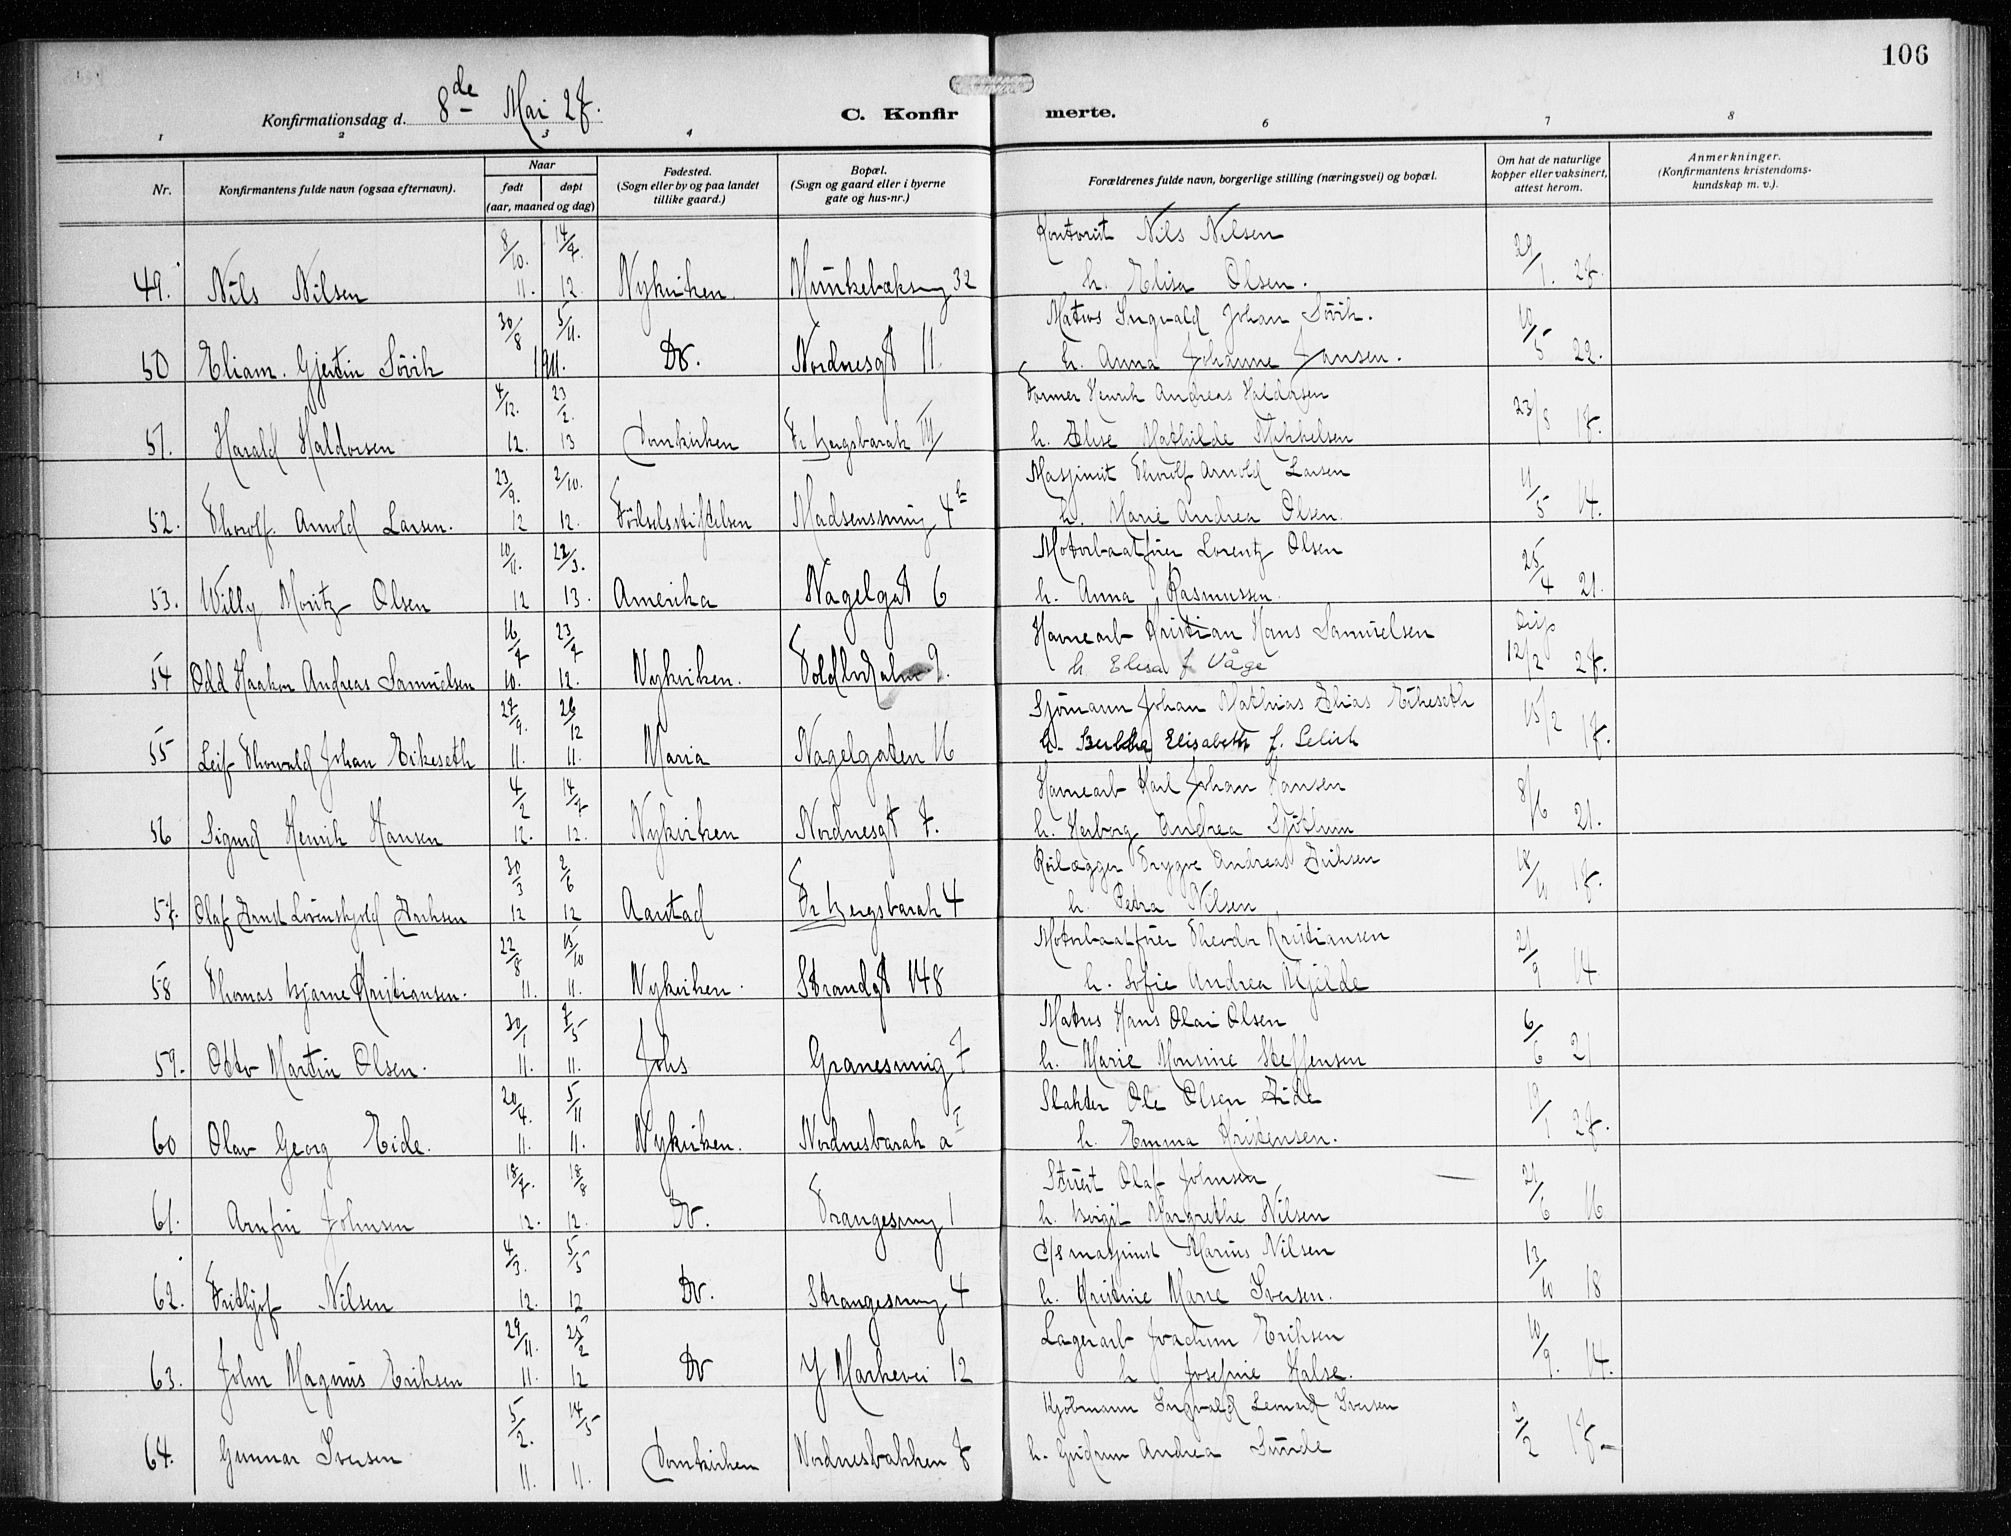 106
Konfirmationsdag d. 8de Mai 27.
C. Konfirmerte.
1 2 3 4 6 7 8
Nr. Konfirmantens fulde navn (ogsaa efternavn). Naar født døpt (aar, maaned og dag) Fødested. (Sogn eller by og paa landet tillike gaard.) Bopæl. (Sogn og gaard eller i byerne gate og hus-nr.) Forældrenes fulde navn, borgerlige stilling (næringsvei) og bopæl. Om hat de naturlige kopper eller vaksinert, attest herom. Anmerkninger. (Konfirmantens kristendomskundskap m. v.).
8/10 14/7 Kontorist Nils Nilsen
49. Nils Nilsen 11. 12. Nykirken. 32 h. Elisa Olsen. 1. 27.
30/8 5/11. Matros Ingvald Johan Søvik.
50 Eliam. Gjertin Søvik 1911. Do. Nordnesgt 11. h. Anna Johanne Jansen. 5 22.
4/12. 23/2. Former Henrik Andreas Haldorsen 23/8 17.
51. Harald Haldorsen 12. 13 Domkirken Fr. bergsbarak III h. Elise Mathilde Mikkelsen
23/9. 2/10. Masjinist Thorolf Arnold Larsen 11/5 14.
52. Thorolf Arnold Larsen. 12 12. Fødselsstiftelsen 4 b h. Marie Andrea Olsen.
10/11. 22/3. Motorbaatfører Lorentz Olsen 25/4 21.
53. Willy Moritz Olsen 12 13. Amerika Nagelgat 6 h. Anna Rasmussen.
16/7 23/7 Havnearb Kristian Hans Samuelsen Disp
54 Odd Haakon Andreas Samuelsen 10. 12. Nykirken. h. Elisa f. Våge 12/2 27.
27/9. 26/12 Sjømann Johan Mathias Elias Eikeseth 15/2 17.
55 Leif Thorvald Johan Eikeseth 11. 11. Maria Nagelgaten 16 h. Elisabeth f.
4/2 14/7 Havnearb Karl Johan Hansen 8/6 21.
56 Sigurd Henrik Hansen 12. 12. Nykirken Nordnesgt 7. h. Herborg Andrea
30/3 2/6 Rørlægger Trygve Andreas Eriksen 18/10 17.
57. Olaf Ernst Løvenskjold Eriksen 12 12 Aarstad Fr. bergsbarak 4 h. Petra Nilsen
22/8 15/10 Motorbaatfører Theodor Kristiansen 21/9 14
58 Thomas Bjarne Kristiansen. 11. 11. Nykirken. Strandgt 148 h. Sofie Andrea Mjelde
30/1 7/5 Matros Hans Olai Olsen 6/6 21
59. Otto Martin Olsen. 11. 11. Johs 7 h. Marie Monsine Steffensen
20/4. 5/11 Slakter Ole Olsen Eide 19/1 27.
60 Olav Georg Eide. 11. 11. Nykirken. Nordnesbarak a I h. Emma Kristensen.
18/7. 18/8 Stuert Olaf Johnsen 21/6 16
61. Arnfin Johnsen 12. 12. Do. 1 h. Birgit Margrethe Nilsen
4/3. 5/5 D/s masjinist Marius Nilsen 13/10 18
62. Fridtjof Nilsen 12. 12 Do. 4 h. Kristine Marie Iversen.
29/11. 25/2 Lagerarb Joachim Eriksen 10/9. 14.
63. John Magnus Eriksen 11. 12 Do Y Markevei 12 h Josefine Halse.
5/2. 14/5 Kjøbmann Ingvald Leonard Iversen 2/2 17
64. Gunnar Iversen 11. 11. Domkirken Nordnesbakken 7 h. Gudrun Andrea Sunde